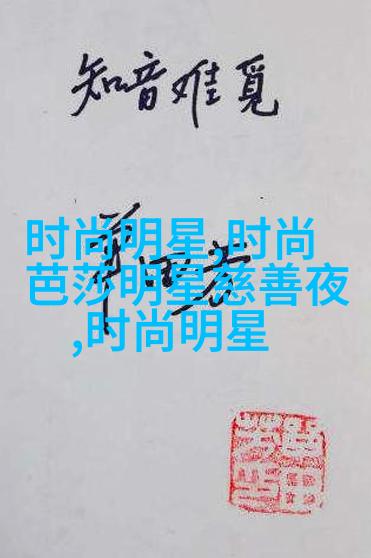 知音难觅
时尚明星,时尚
芭莎明星慈善夜
,时尚明星